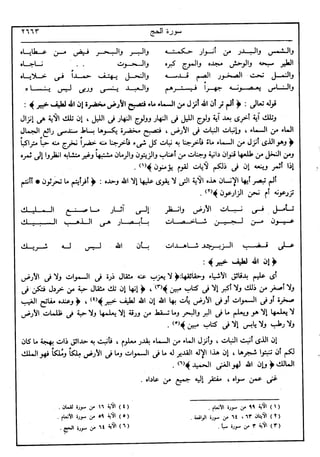 سورة الحج
٢٦٦٣
والشمس والبدر من أنوار حكمته والبر والبحر فيض من عطاياه
الطير سبحه والوحش مجده والموج كبره والحوت ناجاه
والنمل تحت الصخور الصم قدسه والنحل يهتف حمداً في خلاياه
والناس يعصونه جهراً فيسترهم والعبد ينسى وربي ليس ينساه
قوله تعالى : ﴿ ألم تر أن الله أنزل من السماء ماء فتصبح الأرض مخضرة إن الله لطيف خبير ﴾ :
وتلك آية أخرى بعد آية ولوج الليل في النهار وولوج النهار في الليل ، إن تلك الآية هي إنزال
الماء من السماء ، وإنبات النبات في الأرض ، فتصبح مخضرة يكسوها بساط سندسي رائع الجمال
﴿ وهو الذي أنزل من السماء ماء فأخرجنا به نبات كل شيء فأخرجنا منه خضراً نخرج منه حباً متراكباً
ومن النخل من طلعها قنوان دانية وجنات من أعناب والزيتون والرمان مشتبهاً وغير متشابه انظروا إلى ثمره
إذا أثمر وينعه إن في ذلكم لآيات لقوم يؤمنون ﴾ (١) .
ألم تبصر أيها الإنسان هذه الآية التي لا يقوى عليها إلا الله وحده : ﴿ أفرأيتم ما تحرثون * أأنتم
تزرعونه أم نحن الزارعون ﴾ (٢) .
تأمل في نبات الأرض وانظر إلى آثار ما صنع المليك
عيون من لجين شاخصات بأبصار هي الذهب السبيك
على قضب الزبرجد شاهدات بأن الله ليس له شريك
﴿ إن الله لطيف خبير ﴾ :
أي عليم بدقائق الأشياء وحقائقها : ﴿ لا يعزب عنه مثقال ذرة في السموات ولا في الأرض
ولا أصغر من ذلك ولا أكبر إلا في كتاب مبين ﴾ (٣) ، ﴿ إنها إن تك مثقال حبة من خردل فتكن في
صخرة أو في السموات أو في الأرض يأت بها الله إن الله لطيف خبير ﴾ (٤) ، ﴿ وعنده مفاتح الغيب
لا يعلمها إلا هو ويعلم ما في البر والبحر وما تسقط من ورقة إلا يعلمها ولا حبة في ظلمات الأرض
ولا رطب ولا يابس إلا في كتاب مبين ﴾ (٥) .
إن الذي أنبت النبات ، وأنزل الماء من السماء بقدر معلوم ، فأنبت به حدائق ذات بهجة ما كان
لكم أن تنبتوا شجرها ، إن هذا الإله القدير له ما في السموات وما في الأرض ملكاً وملكاً فهو الملك
المالك ﴿ وإن الله لهو الغني الحميد ﴾ (٦) .
غني عمن سواه ، مفتقر إليه جميع من عاداه .
(١) الآية ٩٩ من سورة الأنعام .
(٢) الآيتان ٦٣ ، ٦٤ من سورة الواقعة .
(٣) الآية ٣ من سورة سبأ .
(٤) الآية ١٦ من سورة لقمان .
(٥) الآية ٥٩ من سورة الأنعام .
(٦) الآية ٦٤ من سورة الحج .